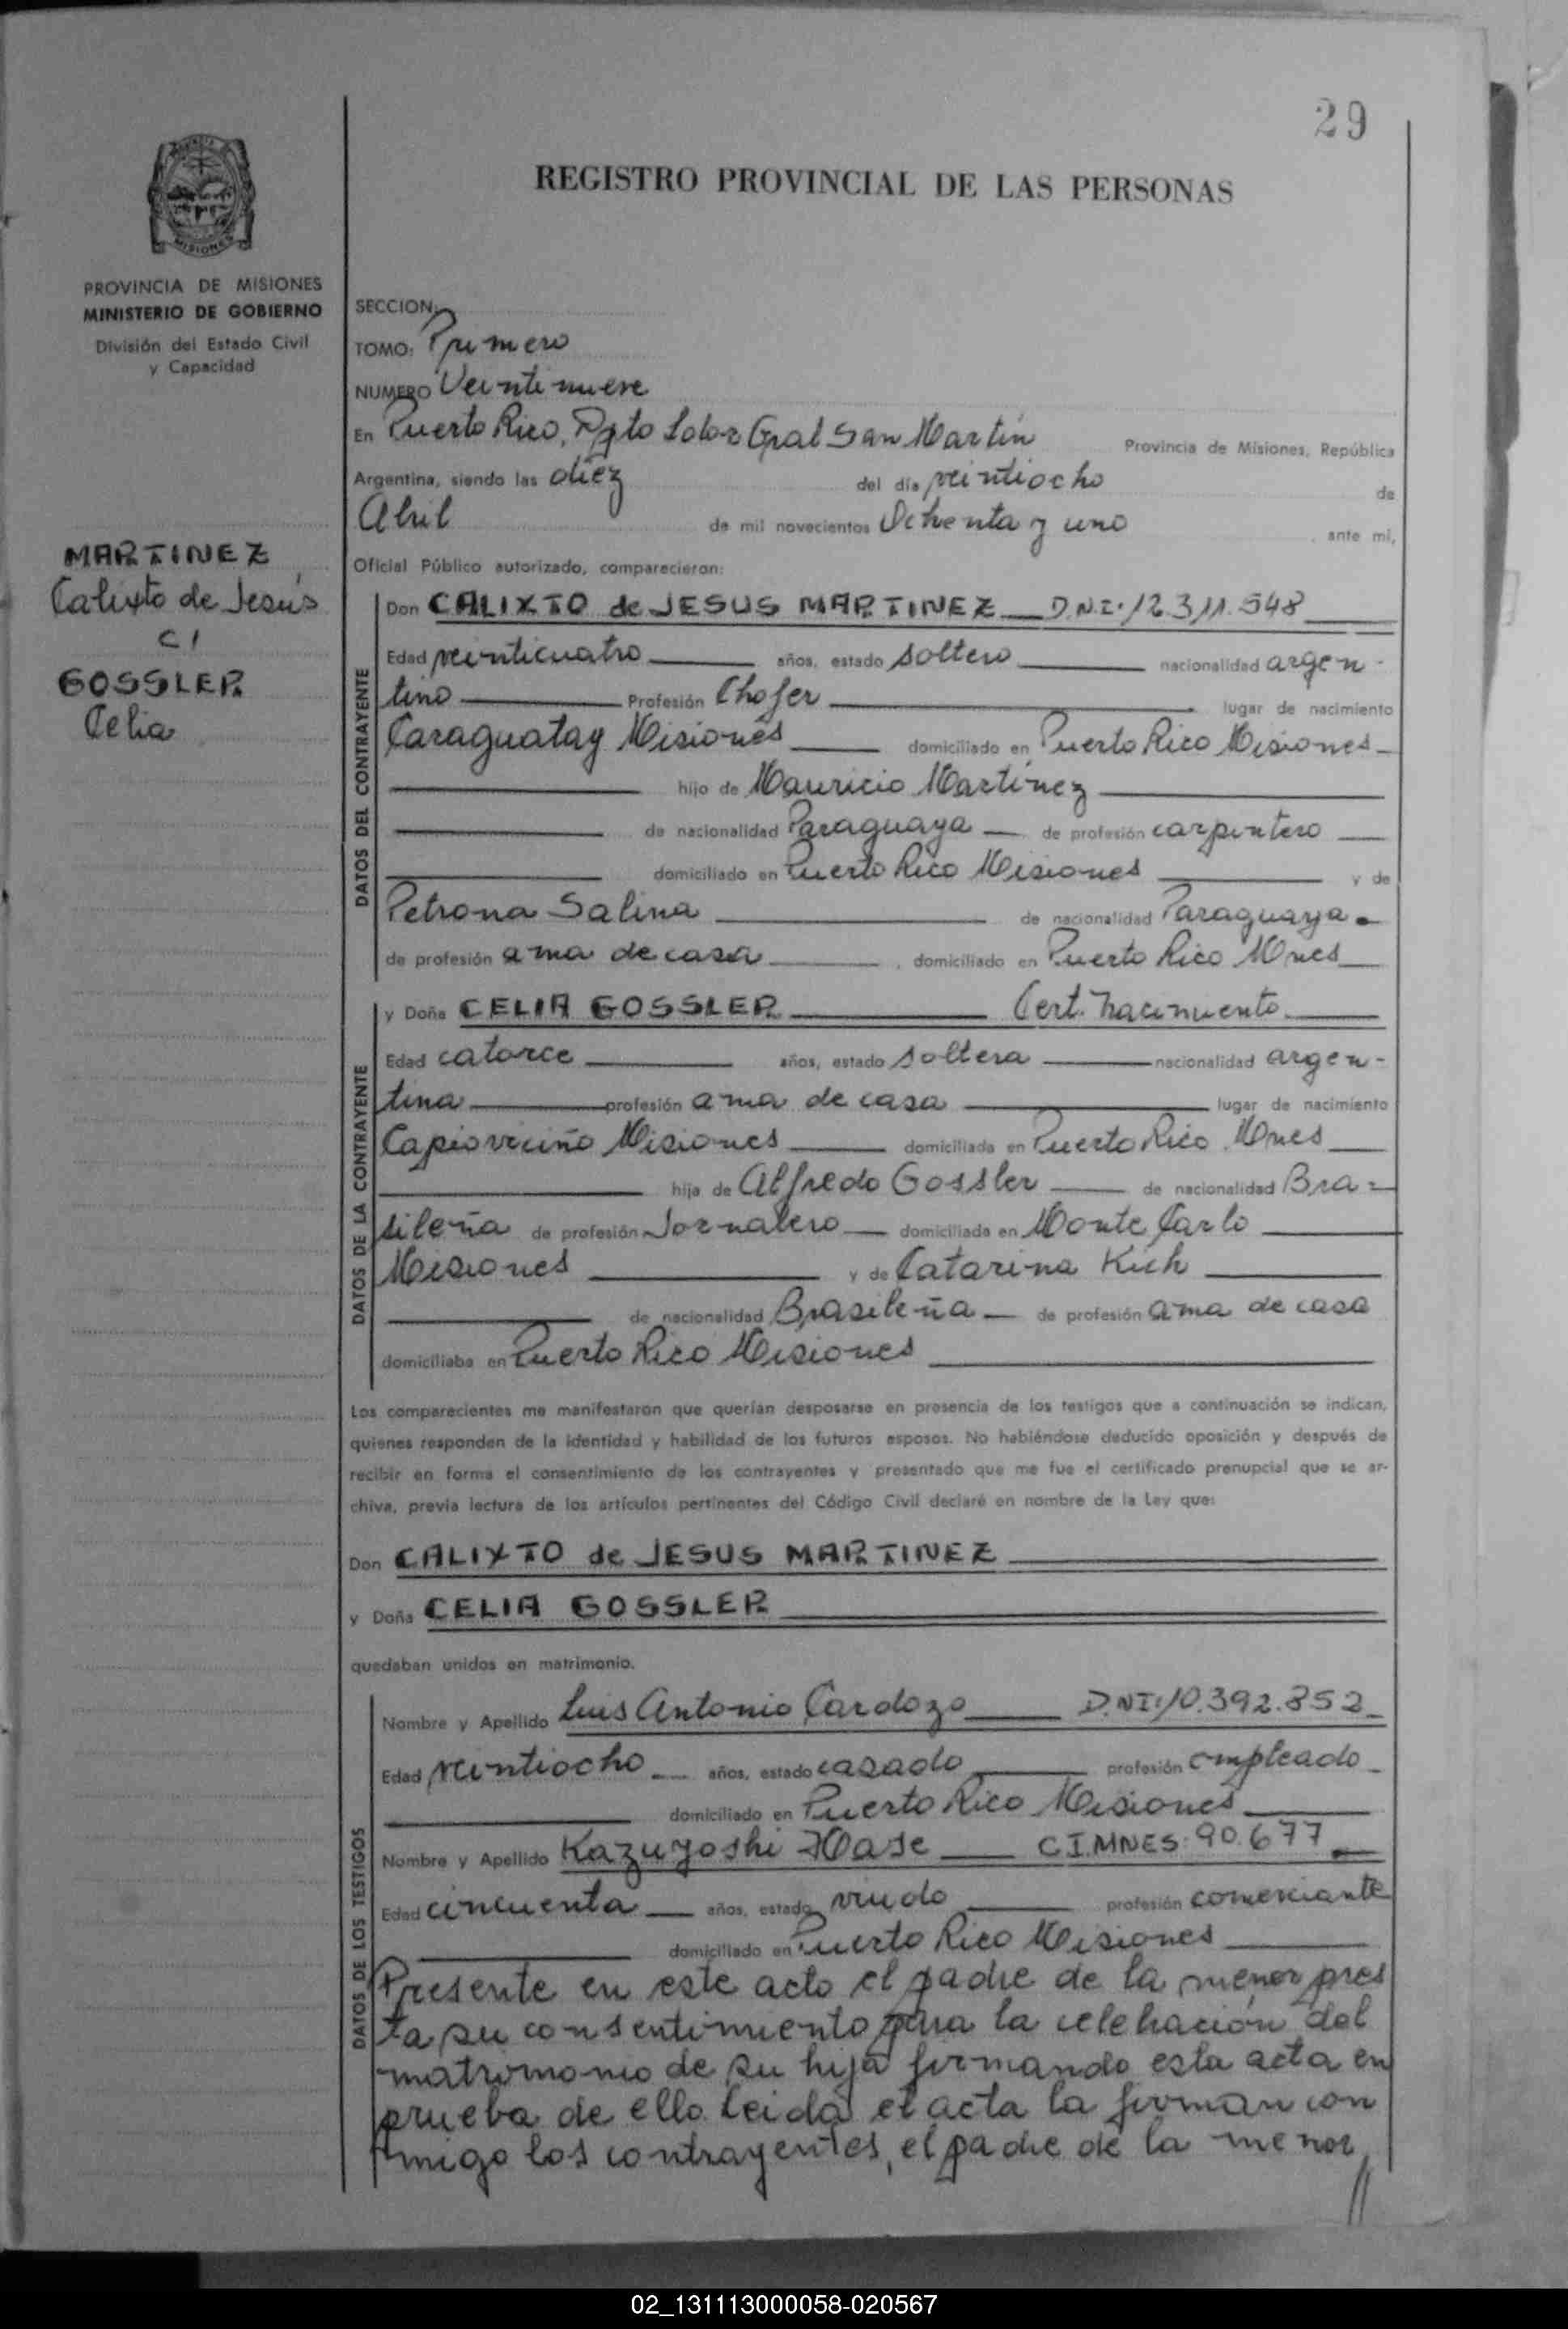 29
REGISTRO PROVINCIAL DE LAS PERSONAS
MISIONES
PROVINCIA DE MISIONES
MINISTERIO DE GOBIERNO
División del Estado Civil
y Capacidad
MARTINEZ
Calixto de Jesús
C/
GOSSLER
Celia
SECCION:
TOMO: Primero
NUMERO Veintinueve
En Puerto Rico, Dpto Ldor Gral San Martín Provincia de Misiones, República
Argentina, siendo las diez del día veintiocho de
Abril de mil novecientos Ochenta y uno , ante mi,
Oficial Público autorizado, comparecieron:
DATOS DEL CONTRAYENTE
Don CALIXTO de JESUS MARTINEZ D.N.I. 12.311.548
Edad veinticuatro años, estado soltero nacionalidad argen-
tino Profesión Chofer lugar de nacimiento
Caraguatay Misiones domiciliado en Puerto Rico Misiones
hijo de Mauricio Martínez
de nacionalidad Paraguaya de profesión carpintero
domiciliado en Puerto Rico Misiones y de
Petrona Salina de nacionalidad Paraguaya
de profesión ama de casa , domiciliado en Puerto Rico Mnes
DATOS DE LA CONTRAYENTE
y Doña CELIA GOSSLER Cert. Nacimiento
Edad catorce años, estado soltera nacionalidad argen-
tina profesión ama de casa lugar de nacimiento
Capioviciño Misiones domiciliada en Puerto Rico Mnes
hija de Alfredo Gossler de nacionalidad Bra-
sileña de profesión Jornalero domiciliada en Monte Carlo
Misiones y de Catarina Kich
de nacionalidad Brasileña de profesión ama de casa
domiciliaba en Puerto Rico Misiones
Los comparecientes me manifestaron que querían desposarse en presencia de los testigos que a continuación se indican,
quienes responden de la identidad y habilidad de los futuros esposos. No habiéndose deducido oposición y después de
recibir en forma el consentimiento de los contrayentes y presentado que me fue el certificado prenupcial que se ar-
chiva, previa lectura de los artículos pertinentes del Código Civil declaré en nombre de la Ley que:
Don CALIXTO de JESUS MARTINEZ
y Doña CELIA GOSSLER
quedaban unidos en matrimonio.
DATOS DE LOS TESTIGOS
Nombre y Apellido Luis Antonio Cardozo D.NI: 10.392.852
Edad veintiocho años, estado casado profesión empleado
domiciliado en Puerto Rico Misiones
Nombre y Apellido Kazuyoshi Hase C.I.MNES: 90.677
Edad cincuenta años, estado viudo profesión comerciante
domiciliado en Puerto Rico Misiones
Presente en este acto el padre de la menor pres
ta su consentimiento para la celebración del
matrimonio de su hija firmando esta acta en
prueba de ello. Leida el acta la firman con
migo los contrayentes, el padre de la menor,
//
02_131113000058-020567